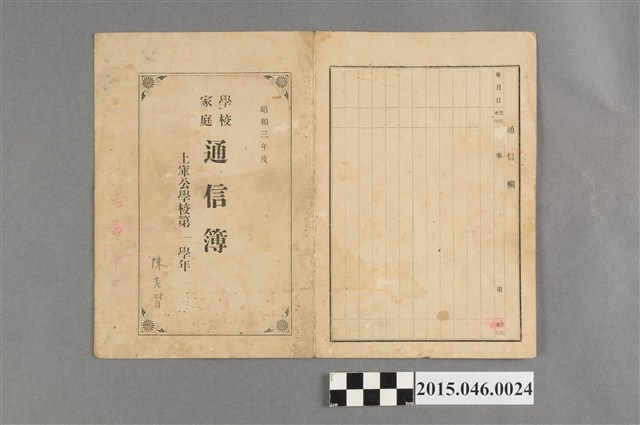 昭和三年度
學校
家庭
通信簿
土庫公學校第一學年
通信欄
年月日
事
項
2015.046.0024